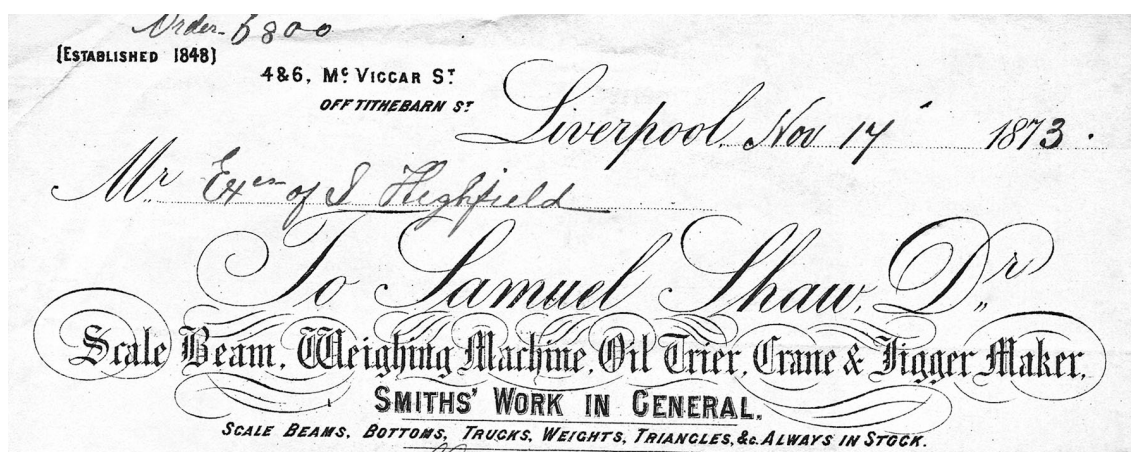 Order 6800
[ESTABLISHED 1848]
4&6, Mc VICCAR ST
OFF TITHEBARN ST
Liverpool, Nov 14 1873.
Mr Exes of S Highfield
To Samuel Shaw, Dr
Scale Beam, Weighing Machine, Oil Trier, Crane & Jigger Maker,
SMITHS' WORK IN GENERAL.
SCALE BEAMS, BOTTOMS, TRUCKS, WEIGHTS, TRIANGLES, &c. ALWAYS IN STOCK.